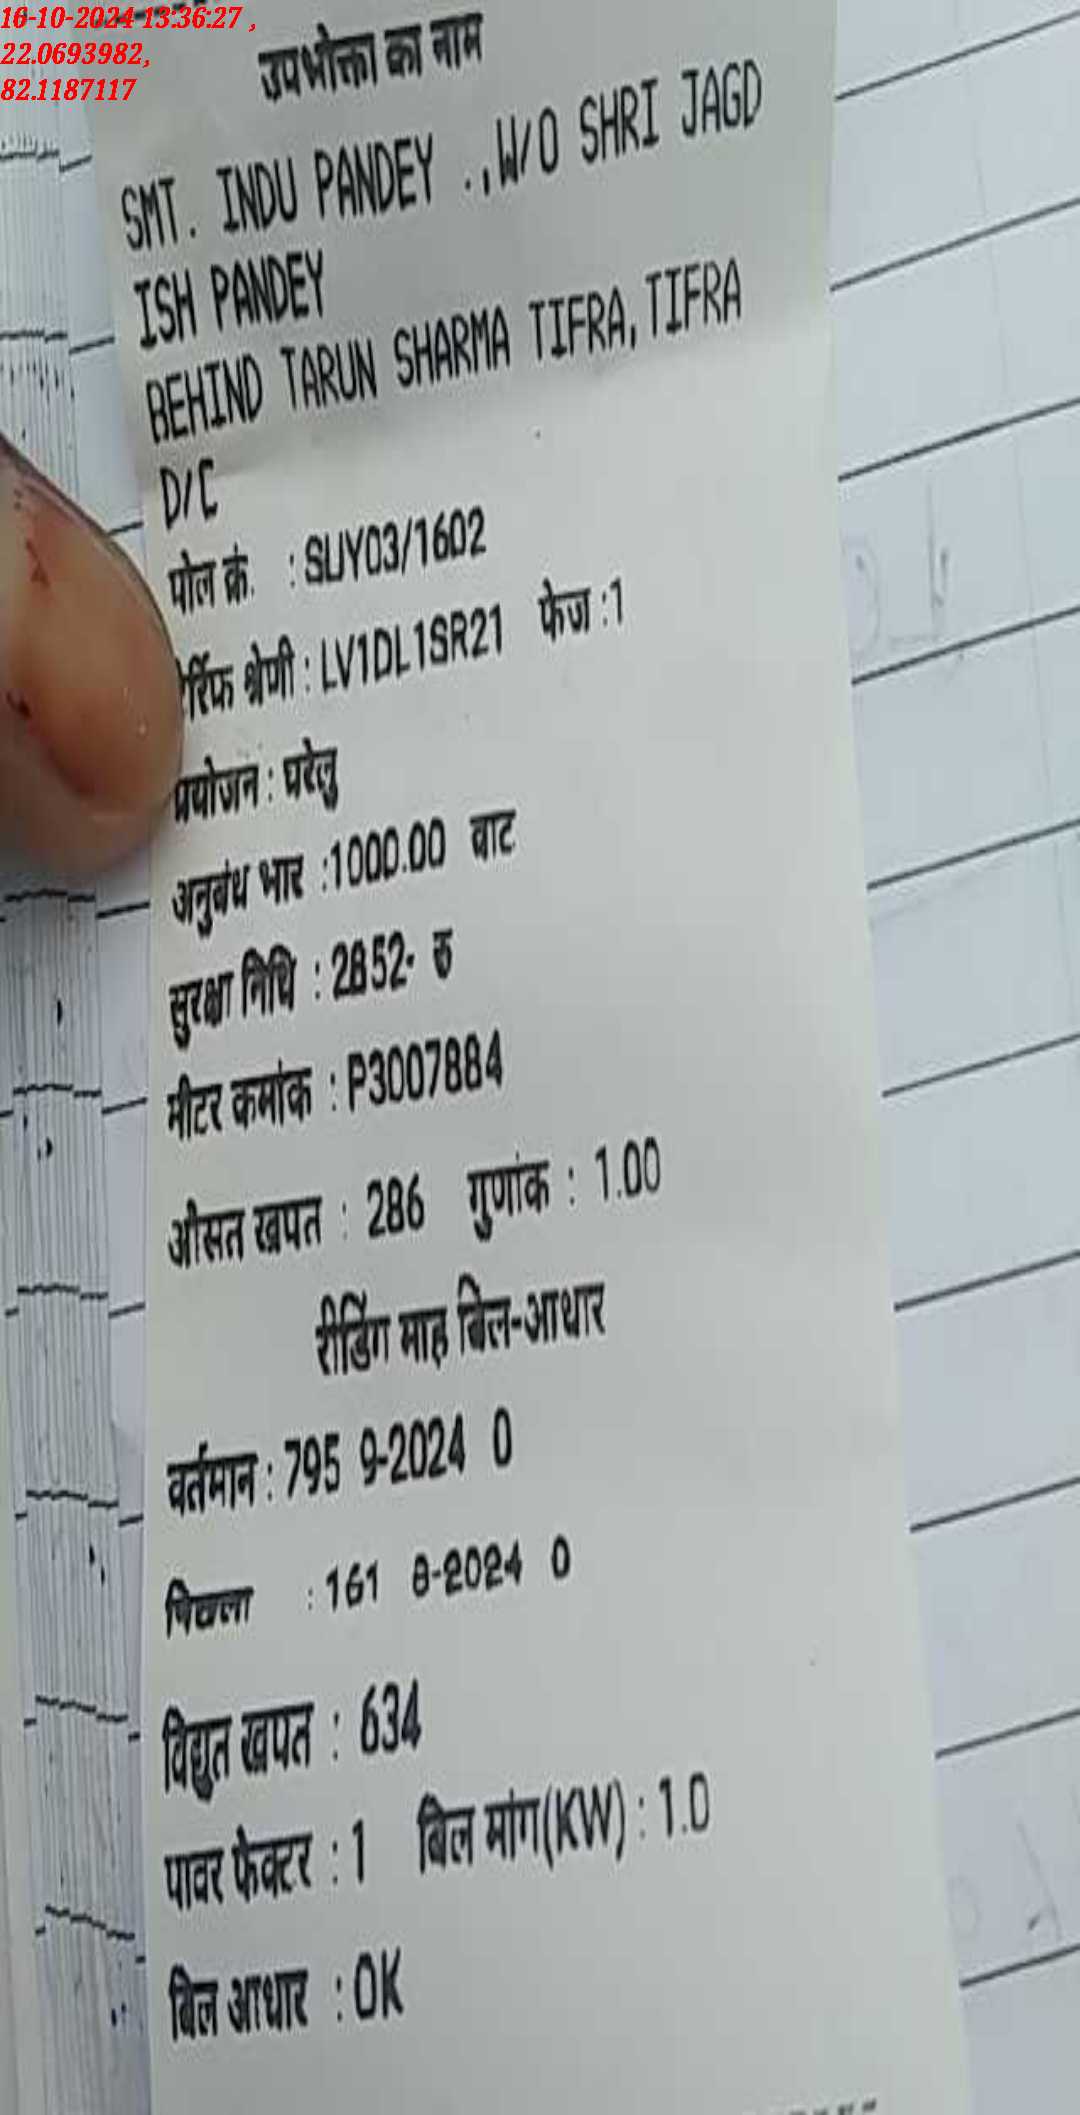 16-10-2024 13:36:27 ,
22.0693982,
82.1187117
उपभोक्ता का नाम
SMT. INDU PANDEY .,W/O SHRI JAGD
ISH PANDEY
BEHIND TARUN SHARMA TIFRA,TIFRA
D/C
पोल क्रं. :SUY03/1602
र्रिफ श्रेणी : LV1DL1SR21 फेज :1
प्रयोजन : घरेलु
अनुबंध भार :1000.00 वाट
सुरक्षा निधि : 2852- रु
मीटर कमांक : P3007884
औसत खपत : 286 गुणांक : 1.00
रीडिंग माह बिल-आधार
वर्तमान : 795 9-2024 0
पिछला : 161 8-2024 0
विद्युत खपत : 634
पावर फेक्टर : 1 बिल मांग(KW) : 1.0
बिल आधार : OK